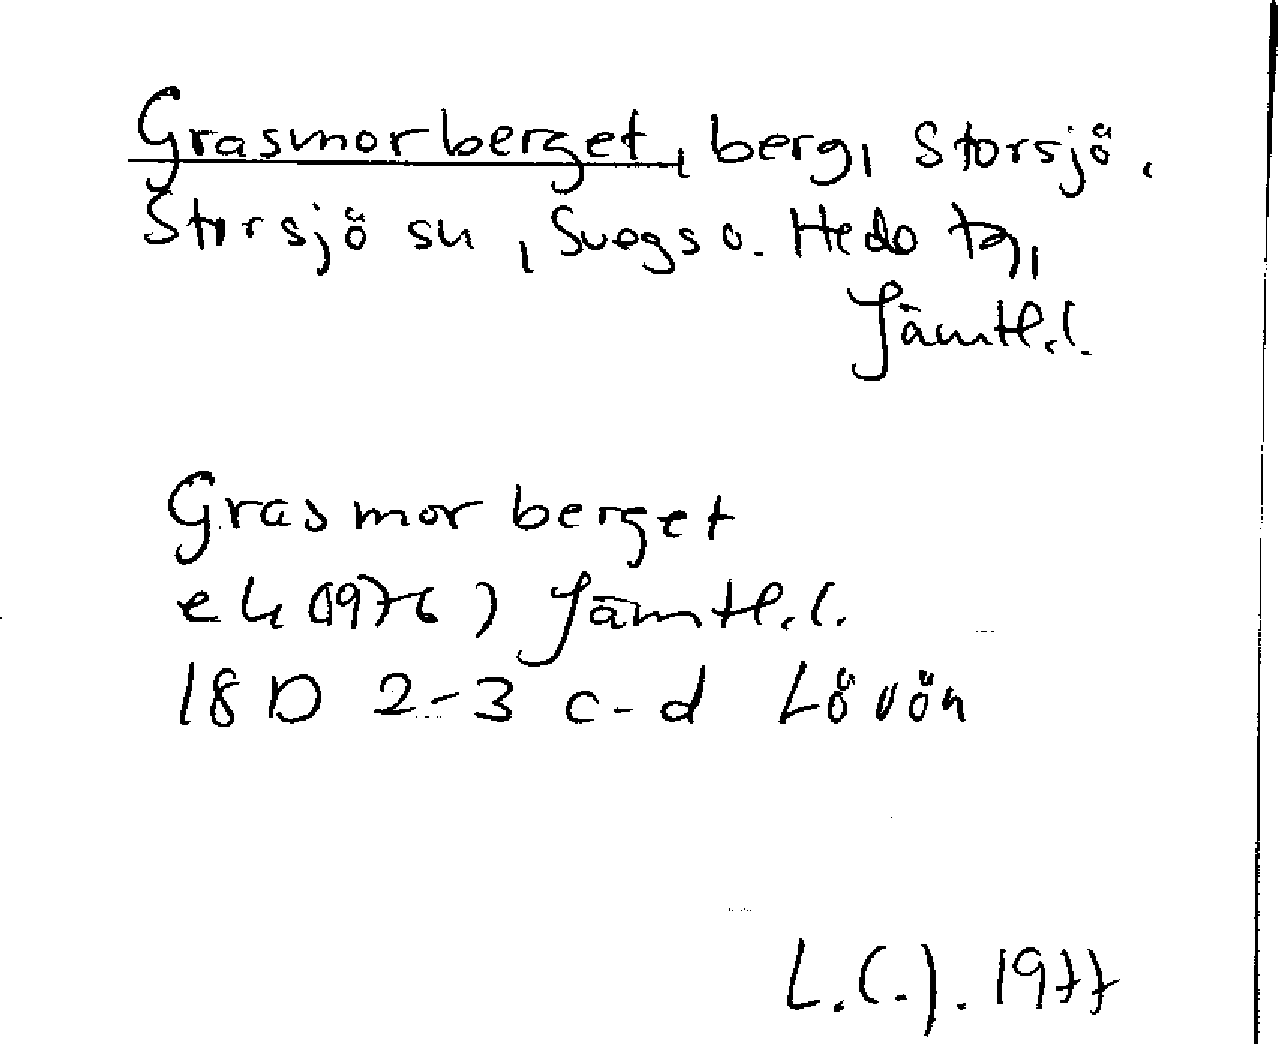 Grasmorberget, berg, Storsjö.
Storsjö sn, Svegs o. Hede tg,
Jämtl.l.
Grasmorberget
ek (1976) Jämtl.l.
18 D 2-3 c-d Lövön
L.C.J. 1977